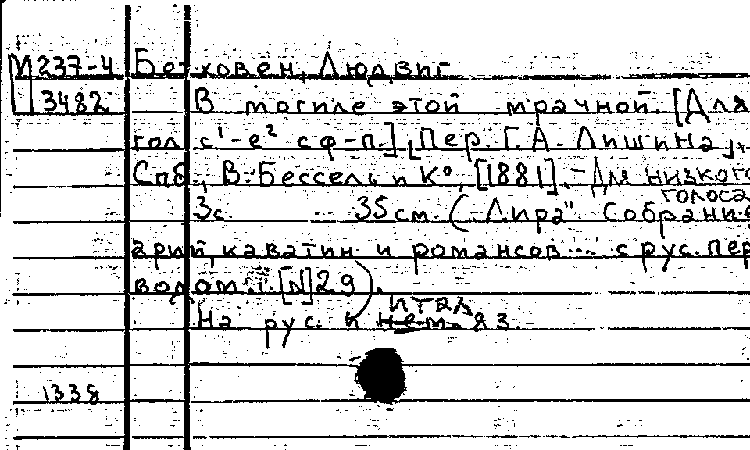 М 237-4 Бетховен, Людвиг
3482 В могиле этой мрачной. [Для
гол. c¹-e² с ф-п.] Пер. Г. А. Лишина,
Спб., В. Бессель и К°, [1881]. - Для низкого
голоса
3с. 35см. ("Лира". Собрание
арий, каватин и романсов... с рус. пер
водом. [N]29).
итал.
На рус. и нем. яз.
1338